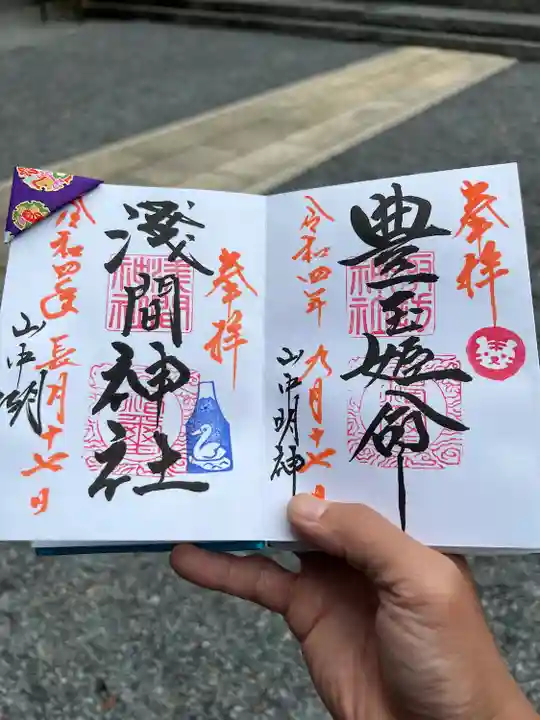 奉拝
豊玉姫命
令和四年 九月十七日
山中明神
奉拝
淺間神社
令和四年 長月十七日
山中明